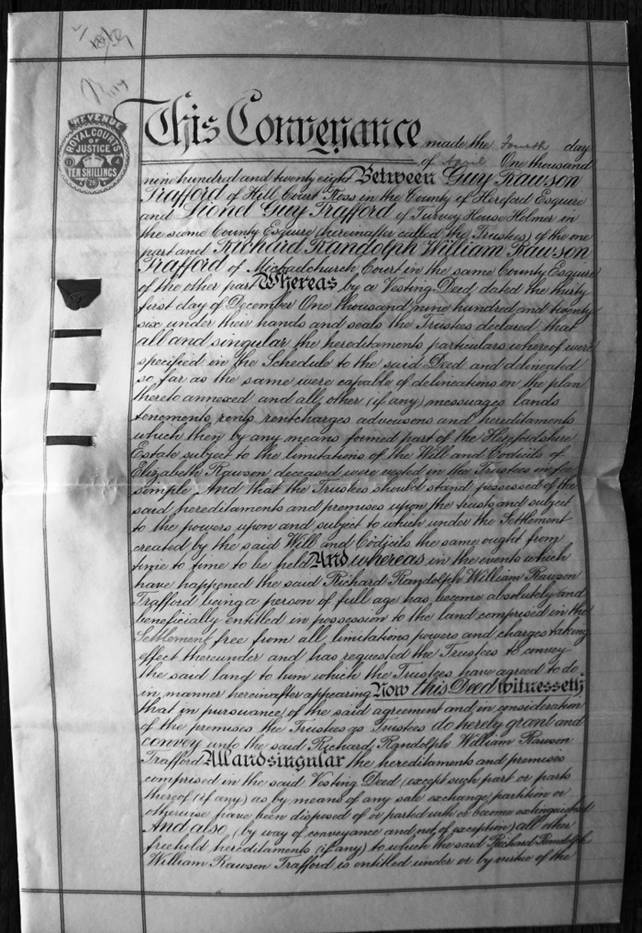 REVENUE
ROYAL COURTS
OF
JUSTICE
TEN SHILLINGS
This Conveyance made the Fourth day
of April One thousand
nine hundred and twenty eight Between Guy Rawson
Trafford of Hill Court Ross in the County of Hereford Esquire
and Lionel Guy Trafford of Turvey House Holmer in
the same County Esquire (hereinafter called the Trustees) of the one
part and Richard Randolph William Rawson
Trafford of Michaelchurch Court in the same County Esquire
of the other part Whereas by a Vesting Deed dated the thirty
first day of December One thousand nine hundred and twenty
six under their hands and seals the Trustees declared that
all and singular the hereditaments particulars whereof were
specified in the Schedule to the said Deed and delineated
so far as the same were capable of delineation in the plan
thereto annexed and all other (if any) messuages lands
tenements rents rentcharges advowsons and hereditaments
which then by any means formed part of the Herefordshire
Estate subject to the limitations of the Will and Codicils of
Elizabeth Rawson deceased were vested in the Trustees in fee
simple And that the Trustees should stand possessed of the
said hereditaments and premises upon the trusts and subject
to the powers upon and subject to which under the Settlement
created by the said Will and Codicils the same ought from
time to time to be held And whereas in the events which
have happened the said Richard Randolph William Rawson
Trafford being a person of full age has become absolutely and
beneficially entitled in possession to the land comprised in the
Settlement free from all limitations powers and charges taking
effect thereunder and has requested the Trustees to convey
the said land to him which the Trustees have agreed to do
in manner hereinafter appearing Now this Deed witnesseth
that in pursuance of the said agreement and in consideration
of the premises the Trustees as Trustees do hereby grant and
convey unto the said Richard Randolph William Rawson
Trafford All and singular the hereditaments and premises
comprised in the said Vesting Deed (except such part or parts
thereof (if any) as by means of any sale exchange partition or
otherwise have been disposed of or parted with or become extinguished
And also (by way of conveyance and not of exception) all other
freehold hereditaments (if any) to which the said Richard Randolph
William Rawson Trafford is entitled under or by virtue of the